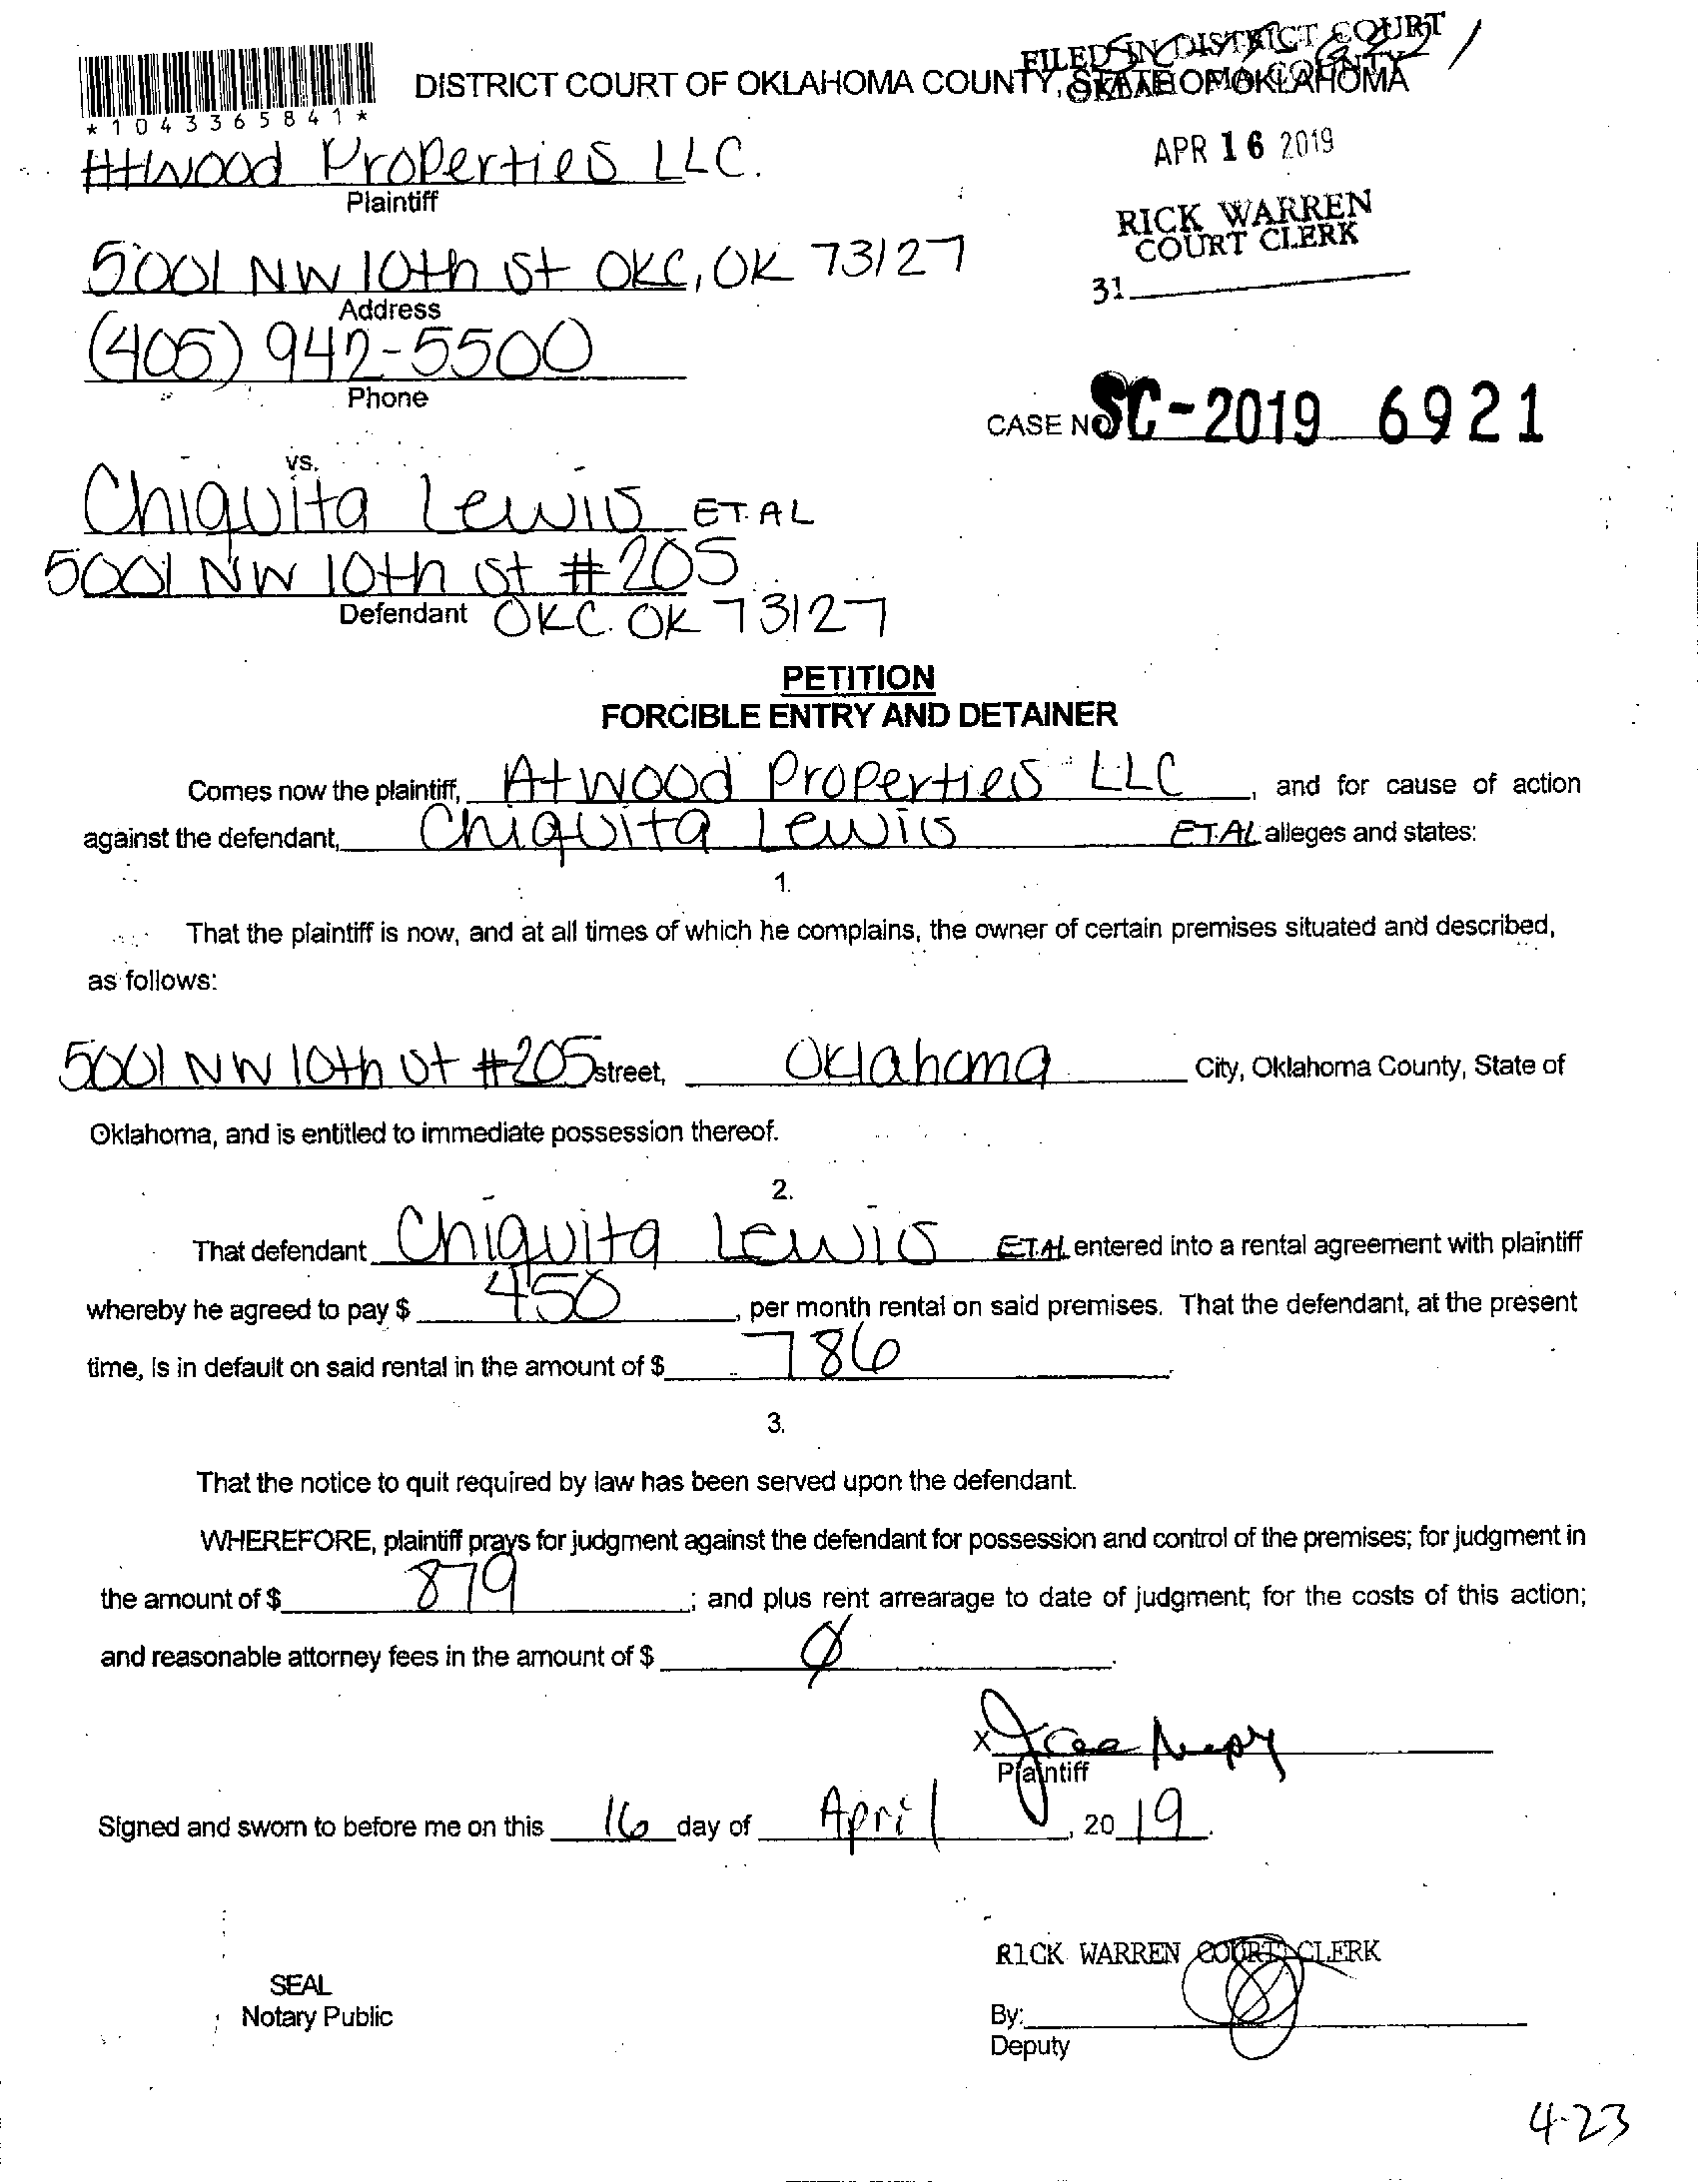 FILED IN DISTRICT COURT
DISTRICT COURT OF OKLAHOMA COUNTY, STATE OF OKLAHOMA
*1043365841*
APR 16 2019
Atwood Properties LLC.
Plaintiff
RICK WARREN
COURT CLERK
5001 NW 10th St OKC, OK 73127
Address
31
(405) 942-5500
Phone
CASE NO SC-2019 6921
vs.
Chiquita Lewis ET. AL
5001 NW 10th St #205
Defendant OKC. OK 73127
PETITION
FORCIBLE ENTRY AND DETAINER
Comes now the plaintiff, Atwood Properties LLC, and for cause of action
against the defendant, Chiquita Lewis ET.AL alleges and states:
1.
That the plaintiff is now, and at all times of which he complains, the owner of certain premises situated and described,
as follows:
5001 NW 10th St #205 street, Oklahoma City, Oklahoma County, State of
Oklahoma, and is entitled to immediate possession thereof.
2.
That defendant Chiquita Lewis ET.AL entered into a rental agreement with plaintiff
whereby he agreed to pay $ 450, per month rental on said premises. That the defendant, at the present
time, is in default on said rental in the amount of $ 786.
3.
That the notice to quit required by law has been served upon the defendant.
WHEREFORE, plaintiff prays for judgment against the defendant for possession and control of the premises; for judgment in
the amount of $ 879; and plus rent arrearage to date of judgment; for the costs of this action;
and reasonable attorney fees in the amount of $ Ø.
X
Plaintiff
Signed and sworn to before me on this 16 day of April, 2019.
RICK WARREN COURT CLERK
SEAL
Notary Public
By:
Deputy
4-23